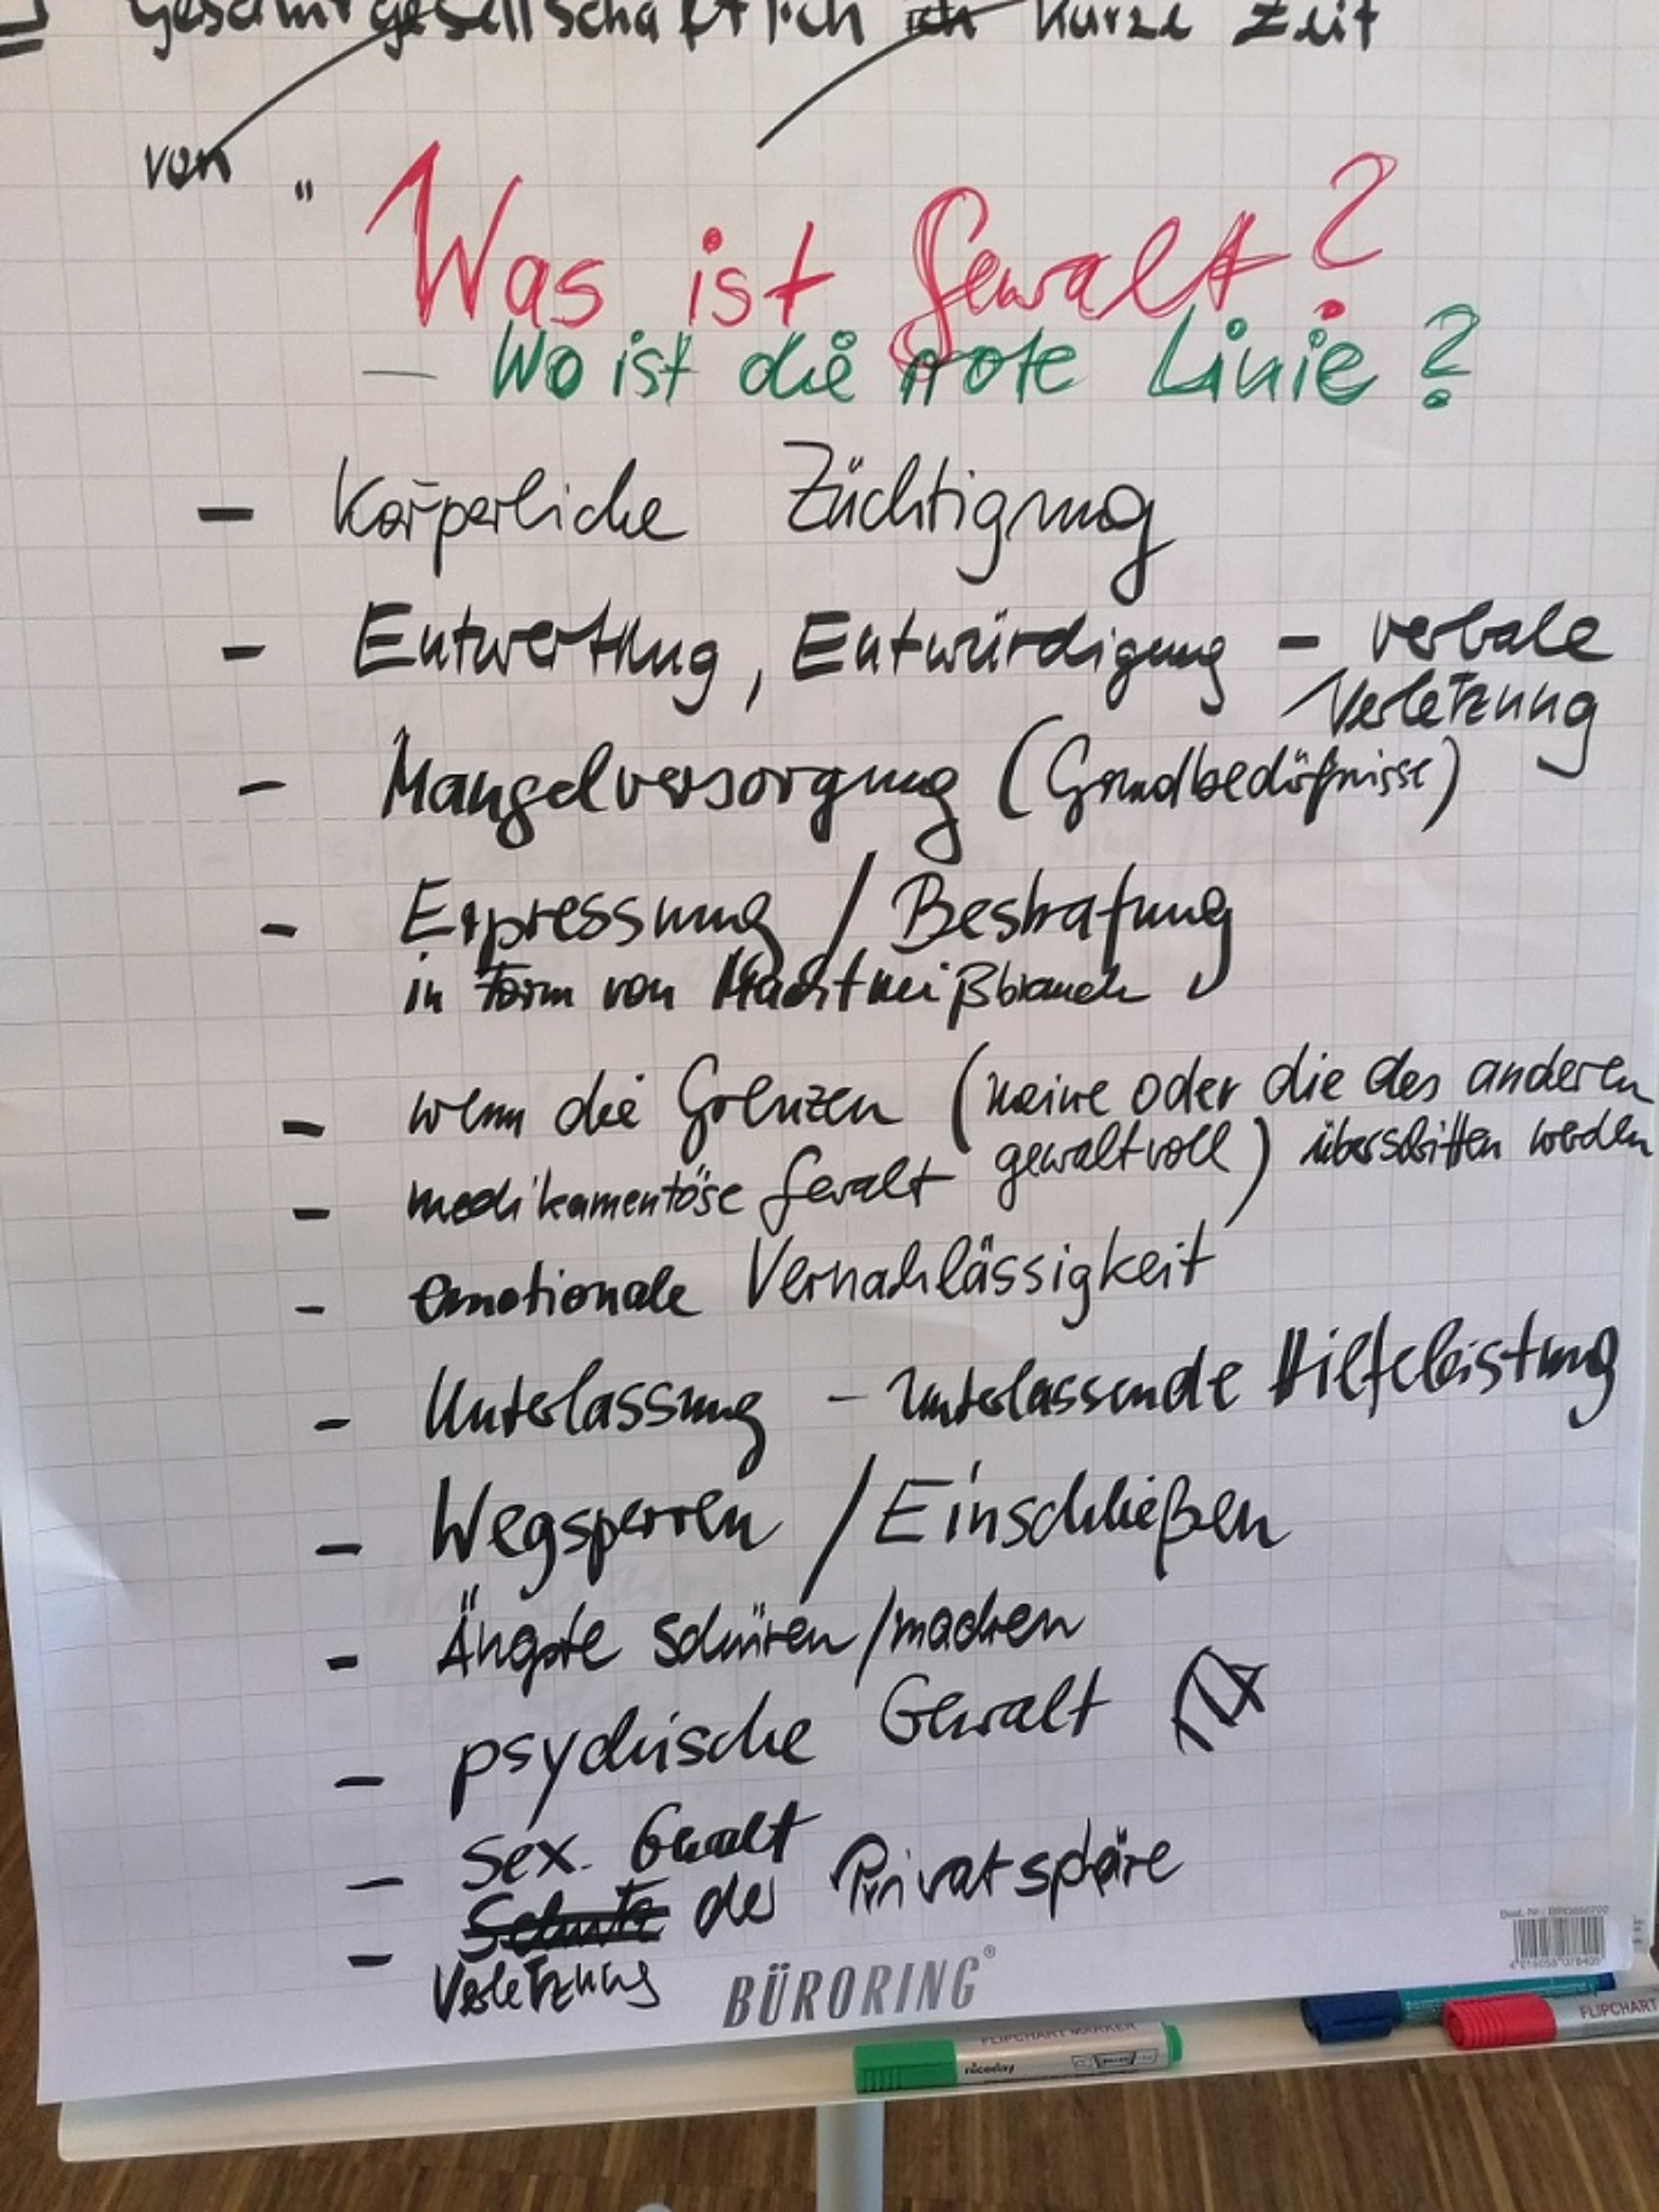 gesamtgesellschaftlich kurze Zeit
von "
Was ist Gewalt?
- Wo ist die rote Linie?
- Körperliche Züchtigung
- Entwertung, Entwürdigung - verbale
Verletzung
- Mangelversorgung (Grundbedüfnisse)
- Erpressung / Bestrafung
in Form von Machtmißbrauch
- wenn die Grenzen (meine oder die des anderen
gewaltvoll) überschritten werden
- medikamentöse Gewalt
- emotionale Vernachlässigkeit
- Unterlassung - unterlassende Hilfeleistung
- Wegsperren / Einschließen
- Ängste schüren/machen
- psychische Gewalt
- Sex. Gewalt
- Schutz der Privatsphäre
Verletzung
BÜRORING®
FLIPCHART MARKER
niceday
FLIPCHART